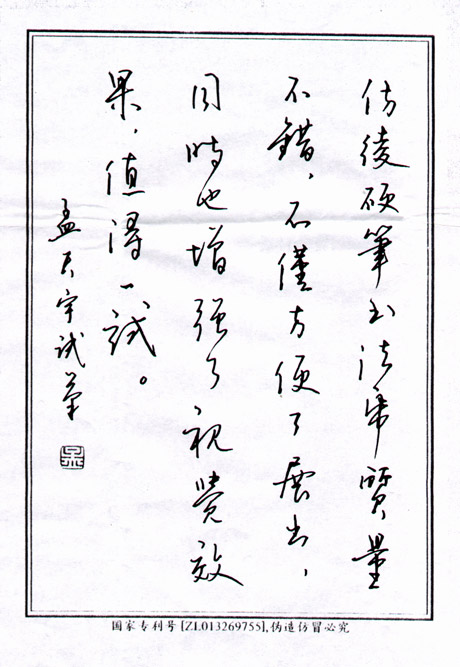 仿绫硬筆书法帋質量
不錯，不僅方便了展出，
同時也增强了視覺效
果，值得一試。
孟天宇試筆
国家专利号[ZL013269755],伪造仿冒必究